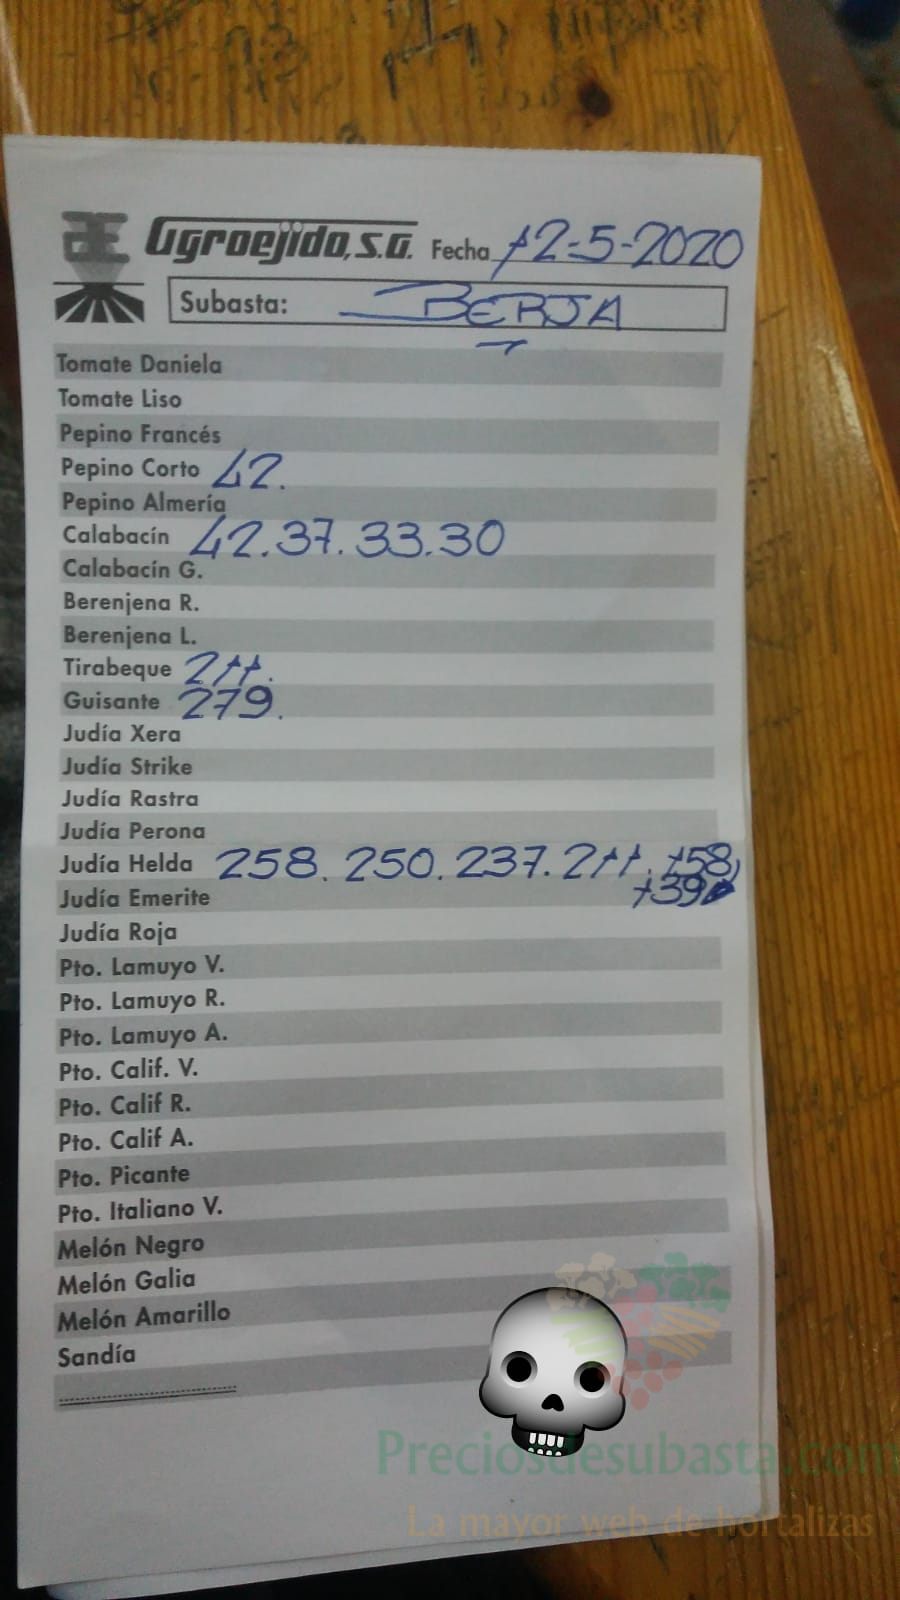 Agroejido, S.A. Fecha 12-5-2020
Subasta: BERJA
Tomate Daniela
Tomate Liso
Pepino Francés
Pepino Corto 42.
Pepino Almería
Calabacín 42.37.33.30
Calabacín G.
Berenjena R.
Berenjena L.
Tirabeque 211.
Guisante 279.
Judía Xera
Judía Strike
Judía Rastra
Judía Perona
Judía Helda 258. 250. 237. 211. 158,
139
Judía Emerite
Judía Roja
Pto. Lamuyo V.
Pto. Lamuyo R.
Pto. Lamuyo A.
Pto. Calif. V.
Pto. Calif R.
Pto. Calif A.
Pto. Picante
Pto. Italiano V.
Melón Negro
Melón Galia
Melón Amarillo
Sandía
Preciosdesubasta.com
La mayor web de hortalizas